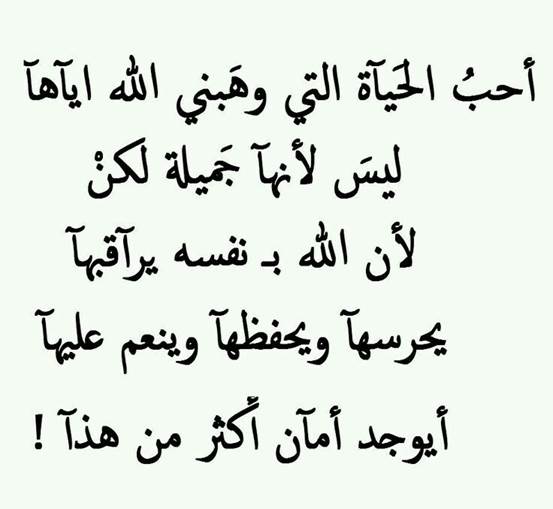 أحبُ الحَيآة التي وهَبني الله ايآهآ
ليسَ لأنهآ جَميلة لَكنْ
لأن الله بـ نفسه يرآقبهآ
يحرسهآ ويحفظهآ وينعم عليهآ
أيوجد أمآن أَكثر من هذآ !